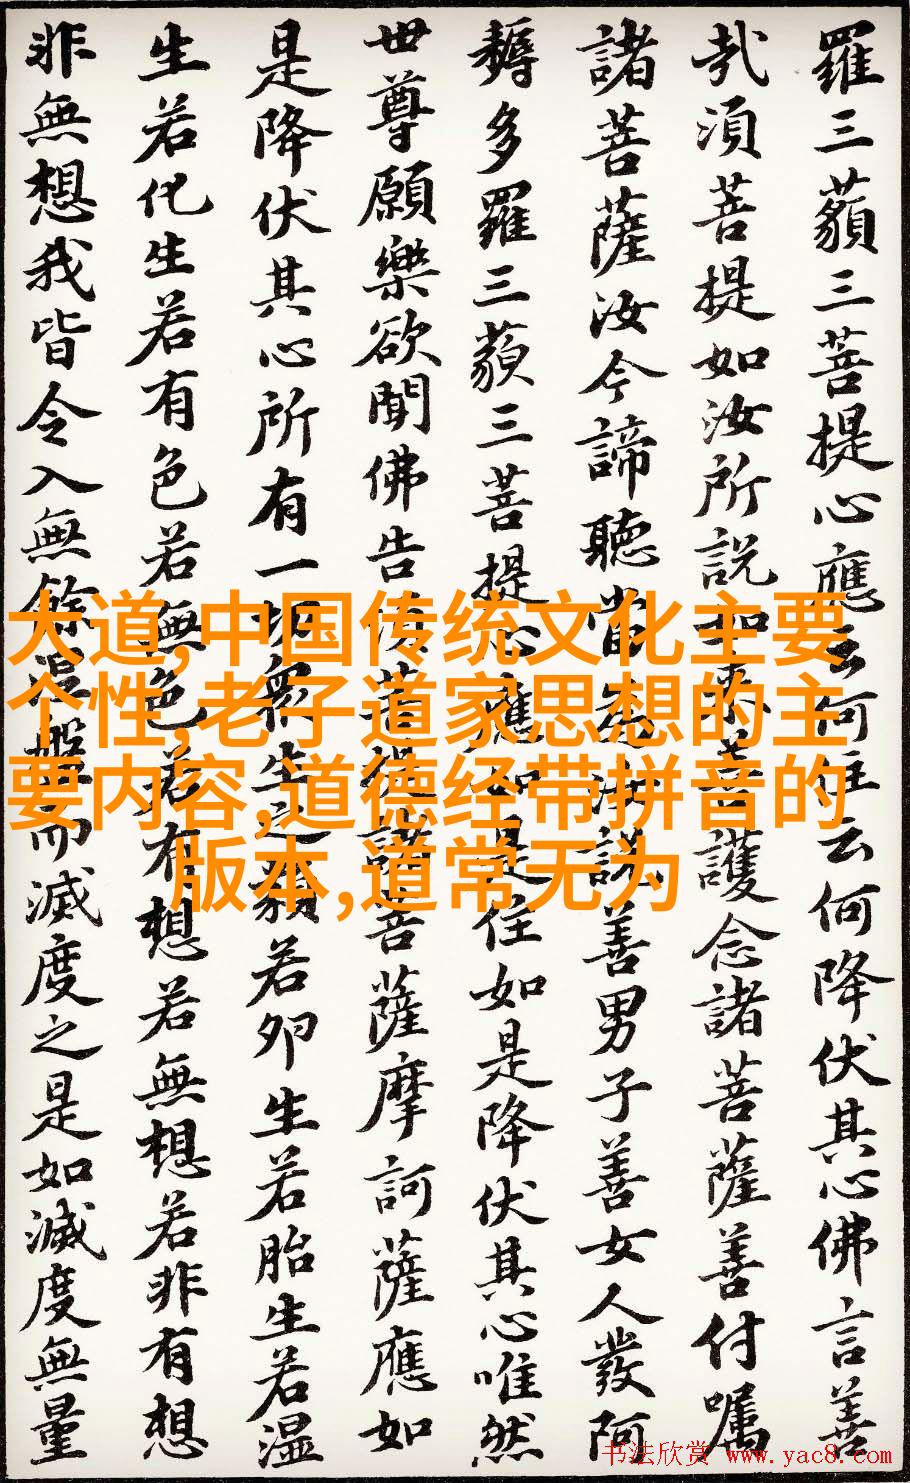 羅三藐三菩提心應云何住云何降伏其心佛言善
哉須菩提如汝所說如來善護念諸菩薩善付囑
諸菩薩汝今諦聽當為汝說善男子善女人發阿
耨多羅三藐三菩提心應如是住如是降伏其心唯然
世尊願樂欲聞佛告須菩提諸菩薩摩訶薩應如
是降伏其心所有一切眾生之類若卵生若胎生若濕
生若化生若有色若無色若有想若無想若非有想
非無想我皆令入無餘涅槃而滅度之是如滅度無量
大道,中国传统文化主要
个性,老子道家思想的主
要内容,道德经带拼音的
版本,道常无为
书法欣赏 www.yac8.com